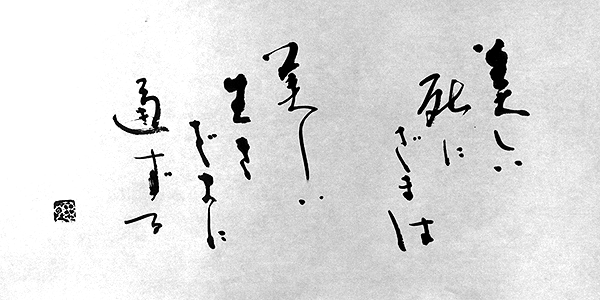 美しい
死に
ざまは
美しい
生き
ざまに
通ずる